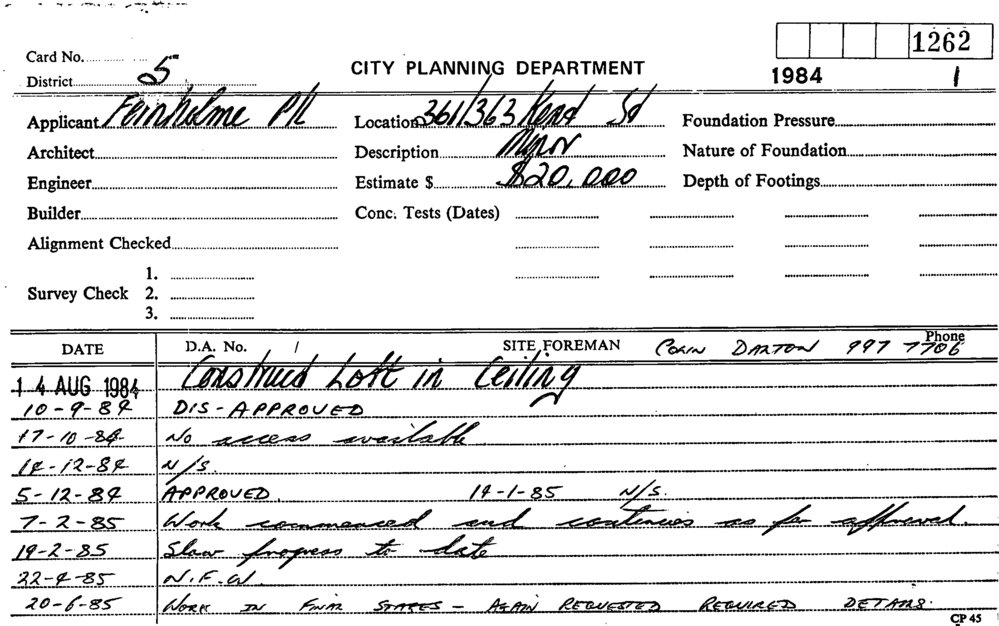 1262
Card No.
District 5
CITY PLANNING DEPARTMENT
1984 1
Applicant Feinholme P/L
Location 361/363 Kent St
Foundation Pressure
Architect
Description Minor
Nature of Foundation
Engineer
Estimate $ $20,000
Depth of Footings
Builder
Conc. Tests (Dates)
Alignment Checked
Survey Check
1.
2.
3.
DATE D.A. No. / SITE FOREMAN COLIN DARTON Phone 997 7706
14 AUG 1984 Construct Loft in Ceiling
10-9-84 DIS-APPROVED
17-10-84 No access available
14-12-84 N/S.
5-12-84 APPROVED. 14-1-85 N/S.
7-2-85 Work commenced and continues as per approval.
19-2-85 Slow progress to date
22-4-85 N.F.W.
20-6-85 WORK IN FINAL STAGES - AGAIN REQUESTED REQUIRED DETAILS.
CP 45